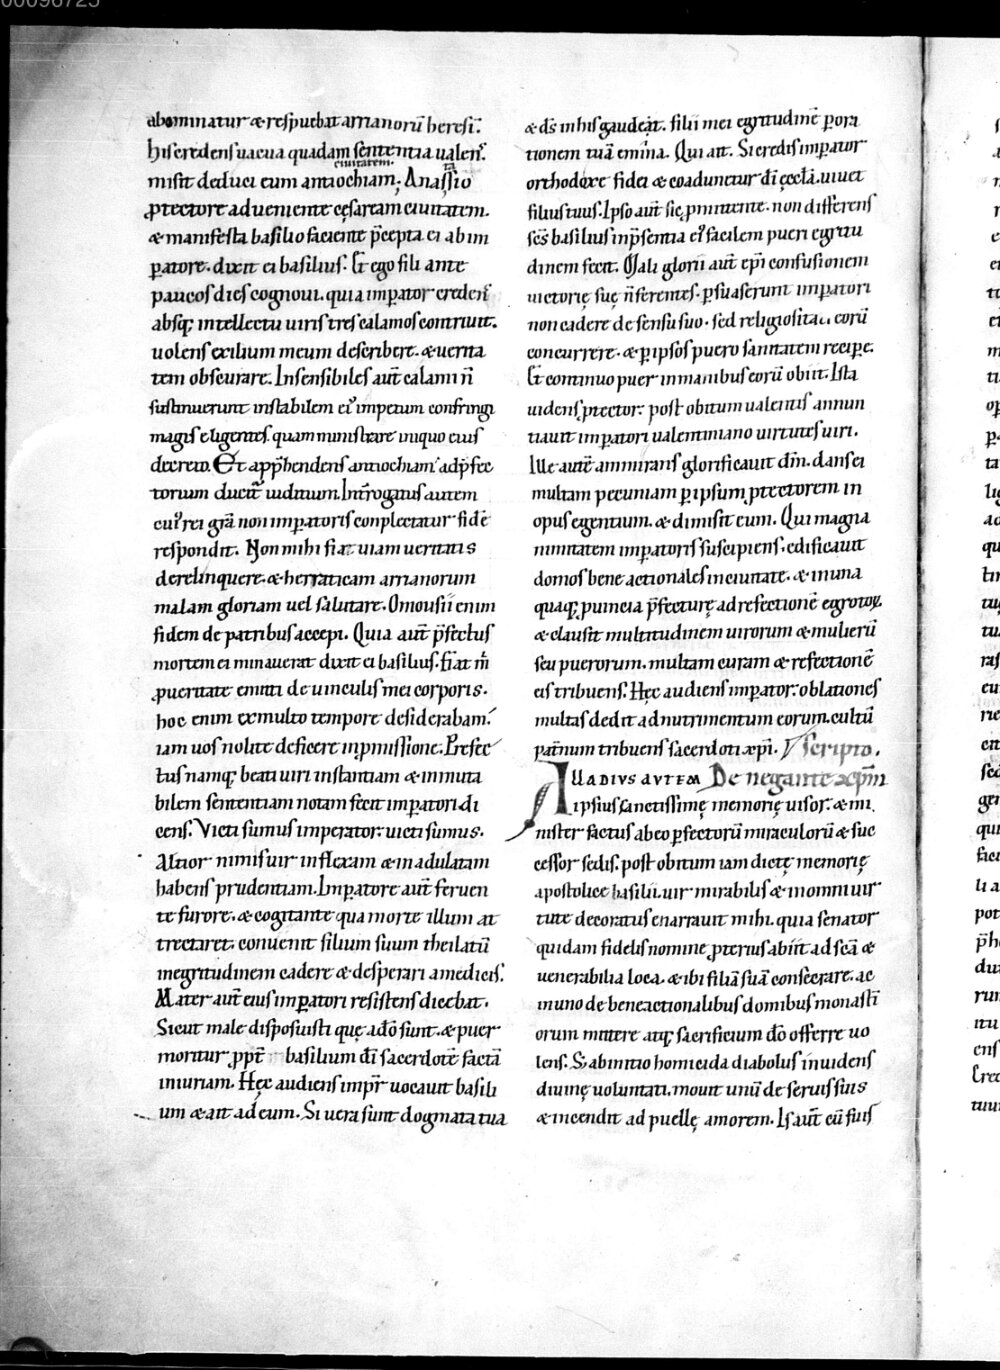 00098725
abominatur & respuebat arrianorū heresī.
His credens uacua quadam sententia ualens.
ciuitatem. ta
misit deduci eum antiochiam; Anassio
ꝓtectore adueniente cęsaream ciuitatem.
& manifesta basilio faciente p̄cepta ei ab im
ꝑatore. dixit ei basilius. Et ego fili ante
paucos dies cognoui. quia imperator credens
absq; intellectu uiris tres calamos contriuit.
uolens exilium meum describere. & uerita
tem obscurare. Insensibiles aūt calami n̄
sustinuerunt instabilem ei' impetum confringi
magis eligentes. quam ministrare iniquo eius
decreto. Et app̄hendens antiochiam adp̄fec
torium ducit' iuditium. Int̄rogatus autem
cui' rei grā non imperatoris conplectatur fidē
respondit. Non mihi fiat uiam ueritatis
derelinquere. & herraticam arrianorum
malam gloriam uel salutare. Omousii enim
fidem de patribus accepi. Quia aūt p̄fectus
mortem ei minauerat dixit ei basilius. Fiat m̄
ꝓ ueritate emitti de uinculis mei corporis.
hoc enim ex multo tempore desiderabam.
iam uos nolite deficere inꝓmissione. Prefec
tus namq; beati uiri instantiam & inmuta
bilem sententiam notam fecit imperatori di
cens. Victi sumus imperator. uicti sumus.
Altior nimis uir inflexam & inadulatam
habens prudentiam. Imperatore aūt feruen
te furore. & cogitante qua morte illum at
trectaret. conuenit filium suum theilatū
inegritudinem cadere & desperari amedicis.
Mater aūt eius imꝑatori resistens dicebat.
Sicut male disposuisti quę addō sunt. & puer
moritur. ꝓpt̄ basilium dī sacerdotē factā
iniuriam. Hęc audiens impr̄ uocauit basili
um & ait ad eum. Si uera sunt dogmata tua
& ds̄ inhis gaudeat. filii mei egritudinē ꝑora
tionem tuā emina. Qui ait. Si credis imperator
orthodoxe fidei & coadunetur dī ęcclā. uiuet
filius tuus. Ipso aūt sic ꝓmittente. non differens
scs̄ basilius inp̄sentia ei' facilem pueri egritu
dinem fecit. Mali glorii aūt epī confusionem
uictorię suę n̄ ferentes. ꝑsuaserunt imperatori
non cadere de sensu suo. sed religiositati eorū
concurrere. & ꝑ ipsos puero sanitatem reciꝑe.
Et continuo puer inmanibus eorū obiit. Ista
uidens ꝓtector. post obitum ualentis annun
tiauit imperatori ualentiniano uirtutes uiri.
Ille autē ammirans glorificauit dm̄. dans ei
multam pecuniam ꝑ ipsum ꝓtectorem in
opus egentium. & dimisit eum. Qui magna
nimitatem imperatoris suscipiens. edificauit
domos bene actionales inciuitate. & in una
quaq; ꝓuincia p̄fecturę ad refectionē egrotoꝝ.
& clausit multitudinem uirorum & mulierū
seu puerorum. multam curam & refectionē
eis tribuens. Hęc audiens imperator. oblationes
multas dedit adnutrimentum eorum. cultū
pat̄num tribuens sacerdoti xp̄i. scripto.
ELLADIVS AVTEM De negante xp̄m
ipsius sanctissimę memorię uisor. & mi
nister factus abeo ꝑfectorū miraculorū & suc
cessor sedis. post obitum iam dictę memorię
apostolice basilii. uir mirabilis & inomni uir
tute decoratus enarrauit mihi. quia senator
quidam fidelis nomine ꝓterius abiit ad scā &
uenerabilia loca. & ibi filiā suā consecrare. ac
inuno de beneactionalibus domibus monast̄i
orum mittere atq; sacrificium dō offerre uo
lens. S; abinitio homicida diabolus inuidens
diuinę uoluntati. mouit unū de seruis suis
& incendit ad puellę amorem. Is aūt cū suis